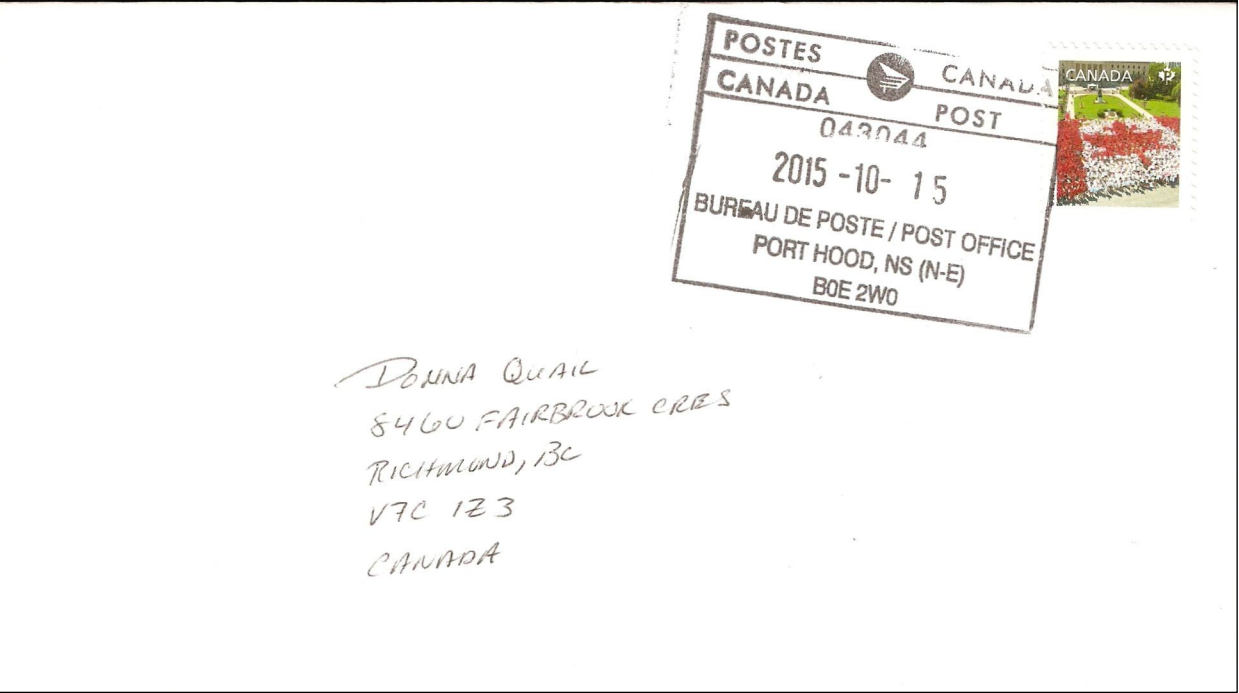 POSTES CANADA
CANADA POST
043044
2015 -10- 15
BUREAU DE POSTE / POST OFFICE
PORT HOOD, NS (N-E)
B0E 2W0
CANADA P
DONNA QUAIL
8460 FAIRBROOK CRES
RICHMOND, BC
V7C 1Z3
CANADA